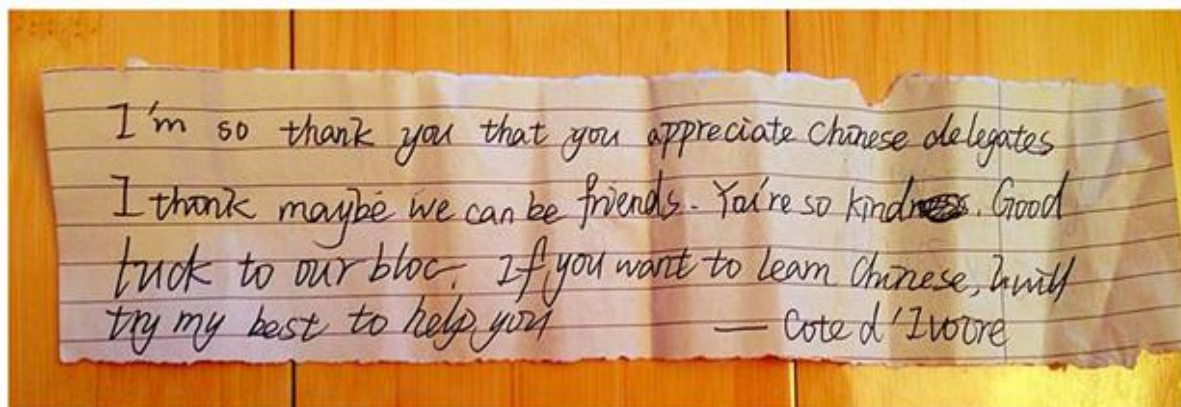 I'm so thank you that you appreciate Chinese delegates
I think maybe we can be friends. You're so kind. Good
luck to our bloc. If you want to learn Chinese, I will
try my best to help you — Cote d'Ivoire